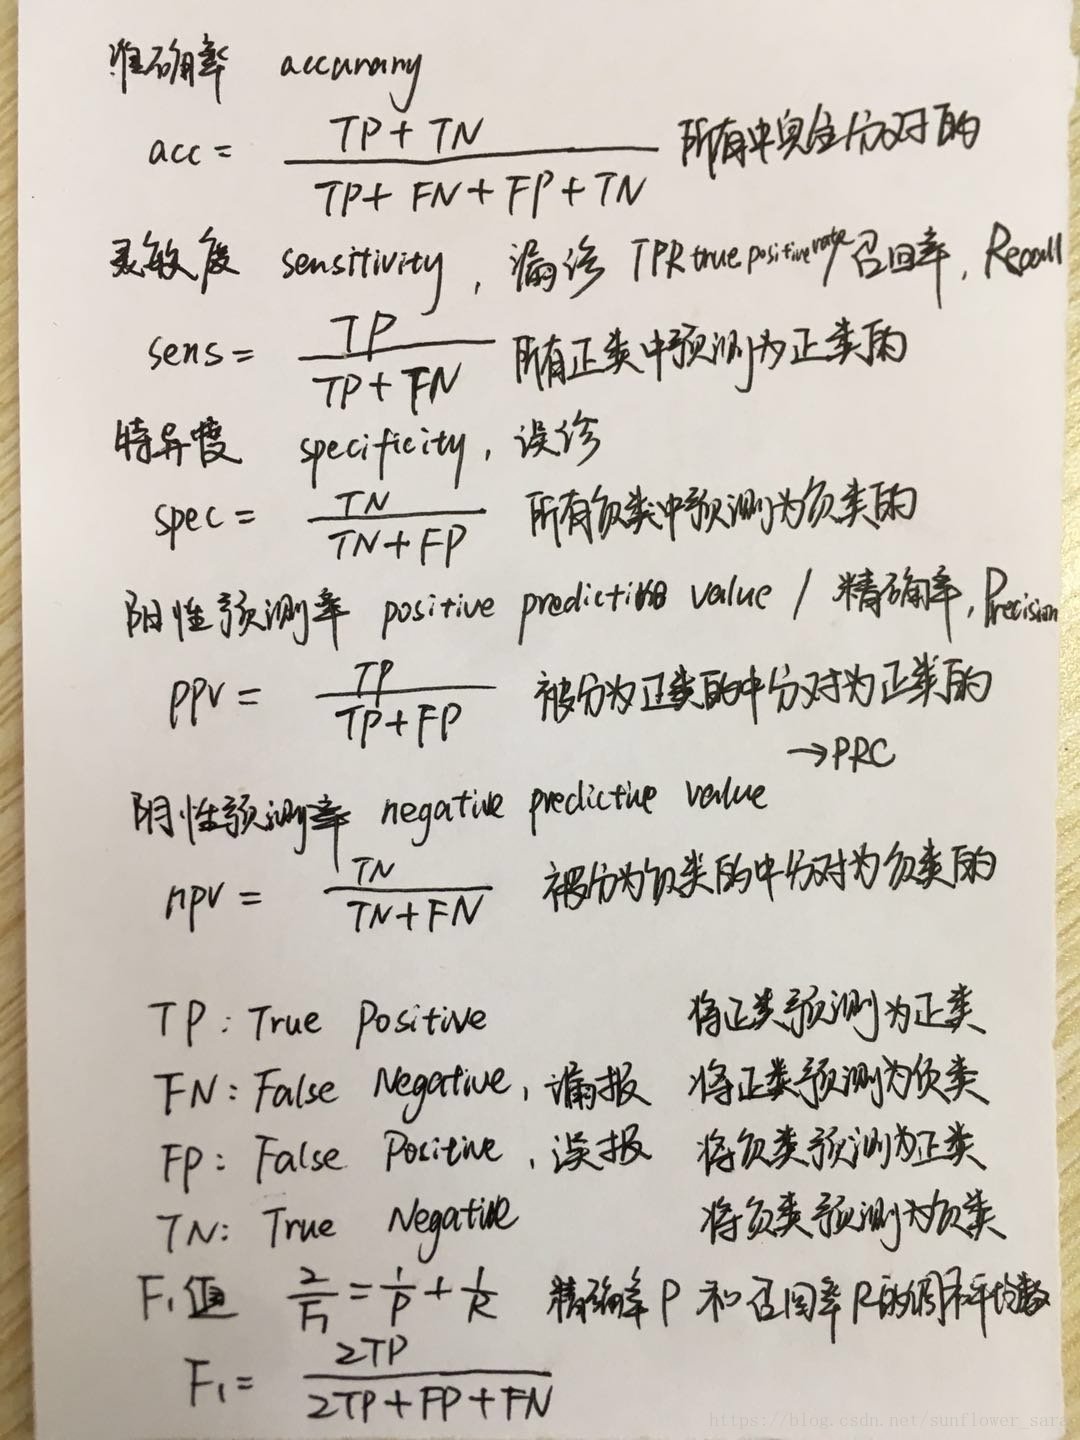 准确率 accuracy
acc = TP + TN / TP + FN + FP + TN 所有中完全分对的
灵敏度 sensitivity, 漏诊 TPR true positive rate/召回率, Recall
sens = TP / TP + FN 所有正类中预测为正类的
特异度 specificity, 误诊
spec = TN / TN + FP 所有负类中预测为负类的
阳性预测率 positive predictive value / 精确率, Precision
ppv = TP / TP + FP 被分为正类的中分对为正类的
→PRC
阴性预测率 negative predictive value
npv = TN / TN + FN 被分为负类的中分对为负类的
TP: True Positive 将正类预测为正类
FN: False Negative, 漏报 将正类预测为负类
FP: False Positive, 误报 将负类预测为正类
TN: True Negative 将负类预测为负类
F₁值 2/F₁ = 1/P + 1/R 精确率P和召回率R的调和平均数
F₁ = 2TP / 2TP + FP + FN
https://blog.csdn.net/sunflower_sara